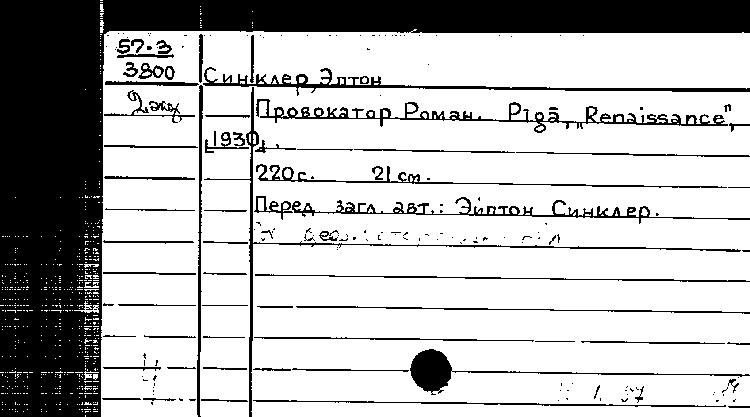 57.3
3800 Синклер, Элтон
2 экз
Провокатор. Роман. Рīgā, „Renaissance",
[1930].
220 с. 21 см.
Перед загл. авт.: Эйптон Синклер.
4
1. 57